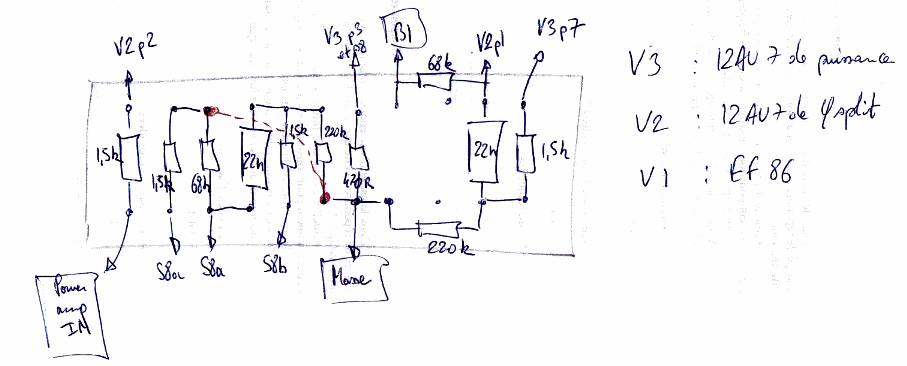 V2p2
V3p3
et p8
B1
V2p1
V3p7
68k
V3 : 12AU7 de puissance
V2 : 12AU7 de φsplit
V1 : EF86
1,5k
1,5k
68k
22n
1,5k
220k
470R
22n
1,5k
220k
S8a
S8a
S8b
Masse
Power
amp
IN